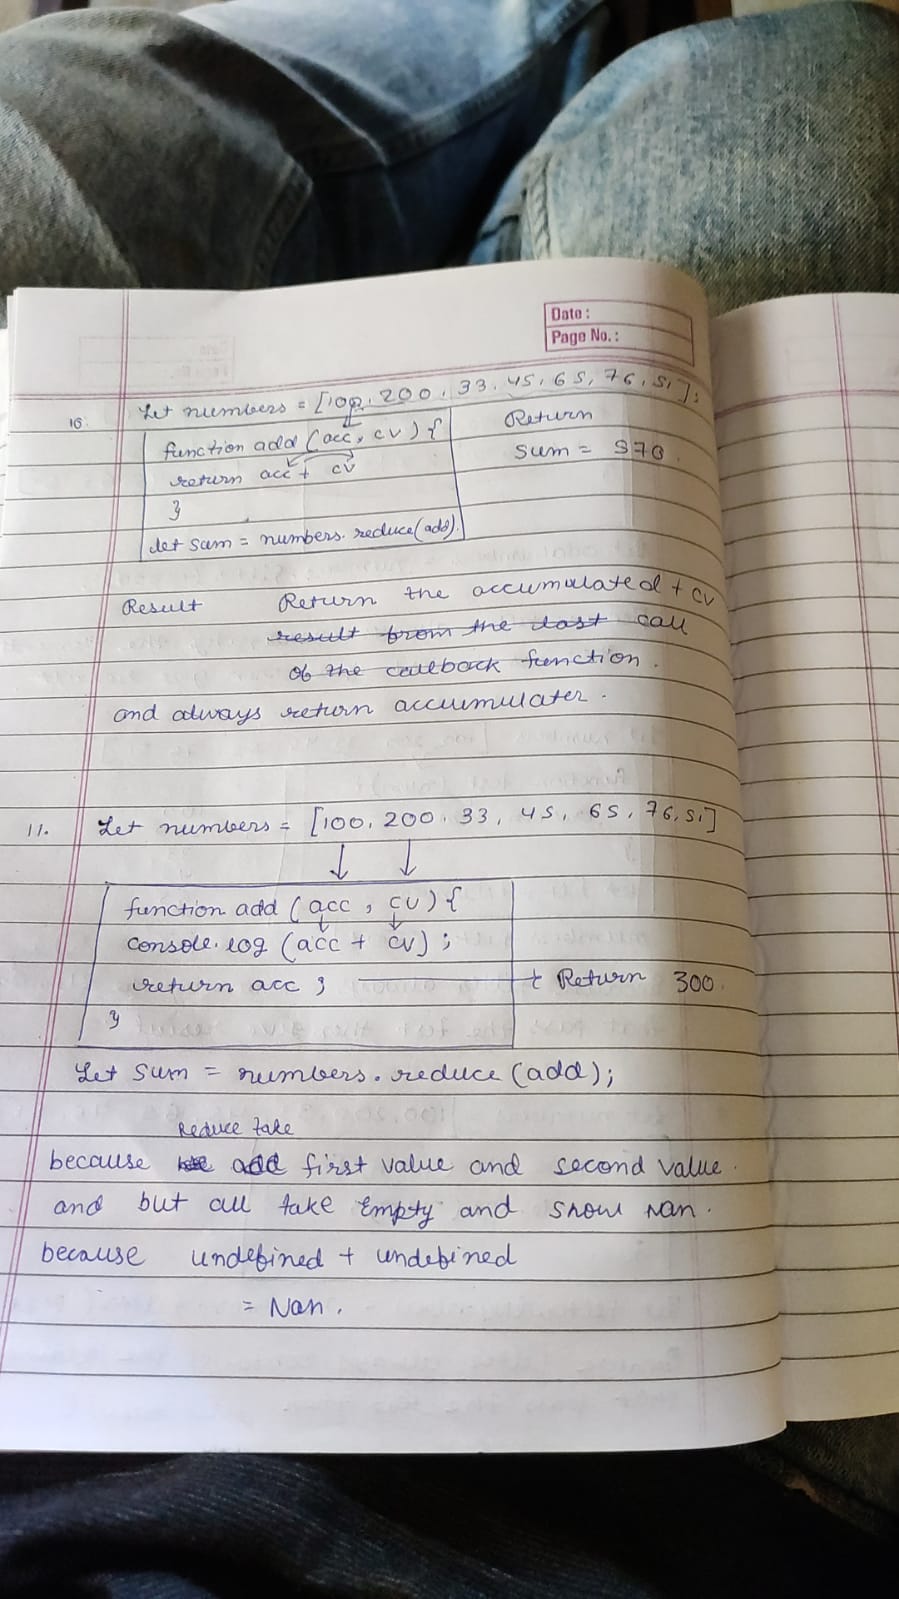 Date:
Page No.:
10. Let numbers = [100, 200, 33, 45, 65, 76, 51];
function add (acc, cv) {
return acc + cv
}
let sum = numbers.reduce(add).
Return
sum = 570.
Result Return the accumulated + cv
result from the last call
of the callback function.
and always return accumulater.
11. Let numbers = [100, 200, 33, 45, 65, 76, 51]
function add (acc, cv) {
console.log (acc + cv);
return acc; Return 300
}
Let sum = numbers.reduce (add);
Reduce take
because add first value and second value.
and but all take Empty and show Nan.
because undefined + undefined
= Nan.